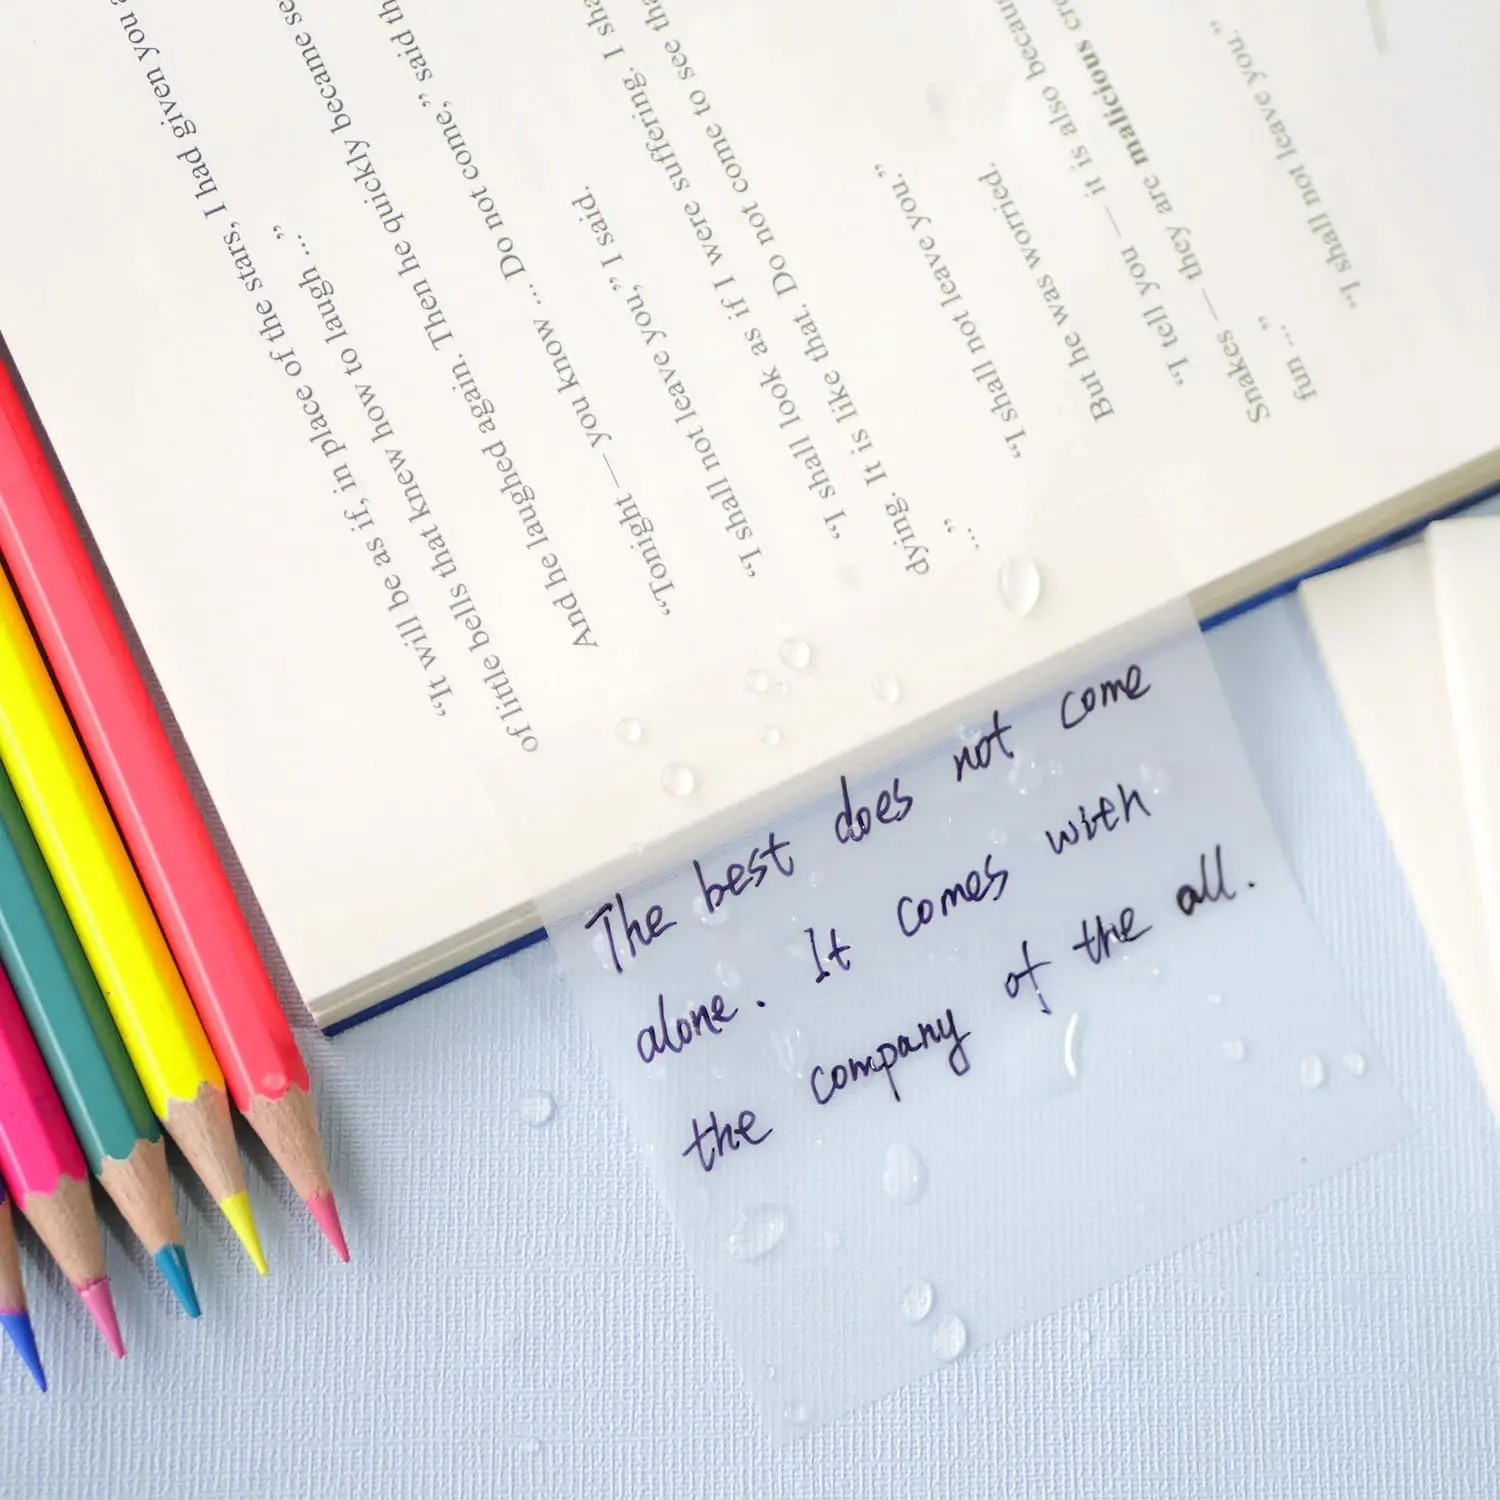 “It will be as if, in place of the stars, I had given you a
of little bells that knew how to laugh ...”
And he laughed again. Then he quickly became se
“Tonight — you know ... Do not come,” said th
“I shall not leave you,” I said.
“I shall look as if I were suffering. I sha
dying. It is like that. Do not come to see tha
...”
“I shall not leave you.”
But he was worried.
“I tell you — it is also becaus
Snakes — they are malicious cre
fun ...”
“I shall not leave you.”
The best does not come
alone. It comes with
the company of the all.